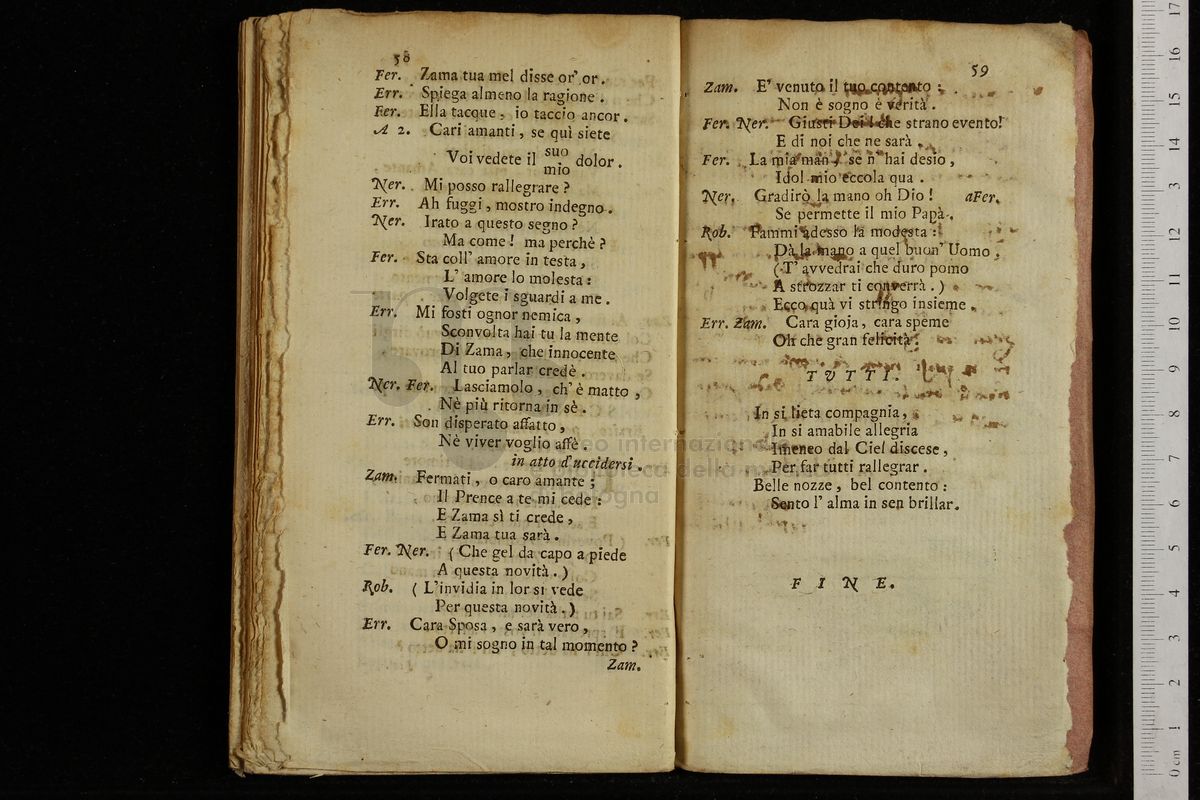 58
Fer. Zama tua mel disse or' or.
Err. Spiega almeno la ragione.
Fer. Ella tacque, io taccio ancor.
A 2. Cari amanti, se quì siete
Voi vedete il suo mio dolor.
Ner. Mi posso rallegrare?
Err. Ah fuggi, mostro indegno.
Ner. Irato a questo segno?
Ma come! ma perchè?
Fer. Sta coll' amore in testa,
L' amore lo molesta:
Volgete i sguardi a me.
Err. Mi fosti ognor nemica,
Sconvolta hai tu la mente
Di Zama, che innocente
Al tuo parlar credè.
Ner. Fer. Lasciamolo, ch' è matto,
Nè più ritorna in sè.
Err. Son disperato affatto,
Nè viver voglio affè.
in atto d'uccidersi.
Zam. Fermati, o caro amante;
Il Prence a te mi cede:
E Zama sì ti crede,
E Zama tua sarà.
Fer. Ner. (Che gel da capo a piede
A questa novità.)
Rob. (L'invidia in lor si vede
Per questa novità.)
Err. Cara Sposa, e sarà vero,
O mi sogno in tal momento?
Zam.
59
Zam. E' venuto il tuo contento:
Non è sogno è verità.
Fer. Ner. Giusti Dei! che strano evento!
E di noi che ne sarà.
Fer. La mia man, se n' hai desio,
Idol mio eccola qua.
Ner. Gradirò la mano oh Dio! a Fer.
Se permette il mio Papà.
Rob. Fammi adesso la modesta:
Dà la mano a quel buon' Uomo;
(T' avvedrai che duro pomo
A strozzar ti converrà.)
Ecco quà vi stringo insieme.
Err. Zam. Cara gioja, cara speme
Oh che gran felicità!
TUTTI.
In si lieta compagnia,
In si amabile allegria
Imeneo dal Ciel discese,
Per far tutti rallegrar.
Belle nozze, bel contento:
Sento l' alma in sen brillar.
FINE.